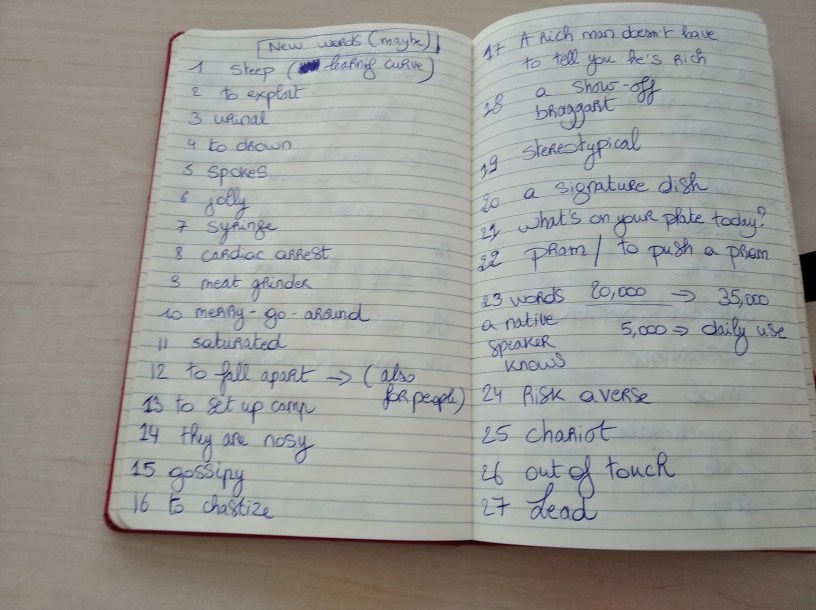 New words (maybe)
1 steep ( learnig curve)
2 to exploit
3 urinal
4 to drown
5 spokes
6 jolly
7 syringe
8 cardiac arrest
9 meat grinder
10 merry-go-around
11 saturated
12 to fall apart → (also
for people)
13 to set up camp
14 they are nosy
15 gossipy
16 to chastize
17 A rich man doesn't have
to tell you he's rich
18 a show-off
braggart
19 stereotypical
20 a signature dish
21 what's on your plate today?
22 pram / to push a pram
23 words 20,000 → 35,000
a native 5,000 → daily use
speaker
knows
24 risk averse
25 chariot
26 out of touch
27 Lead